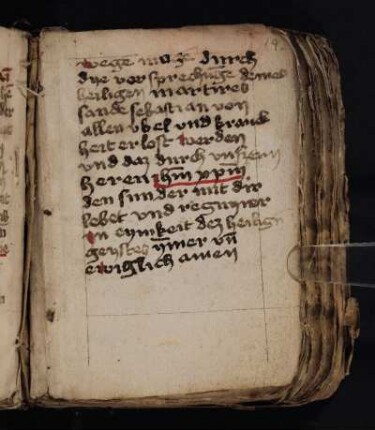 wege mog durch
dye vorsprechūge deines
heiligen martires
sancte sebastian von
allen vbel vnd kranck
heit erlost werden
vnd daz durch vnsern
heren ihm xpm
den sun der mit dir
lebet vnd regniret
in eynikeit dez heilign
geystes ymer vn̄
ewiglich amen